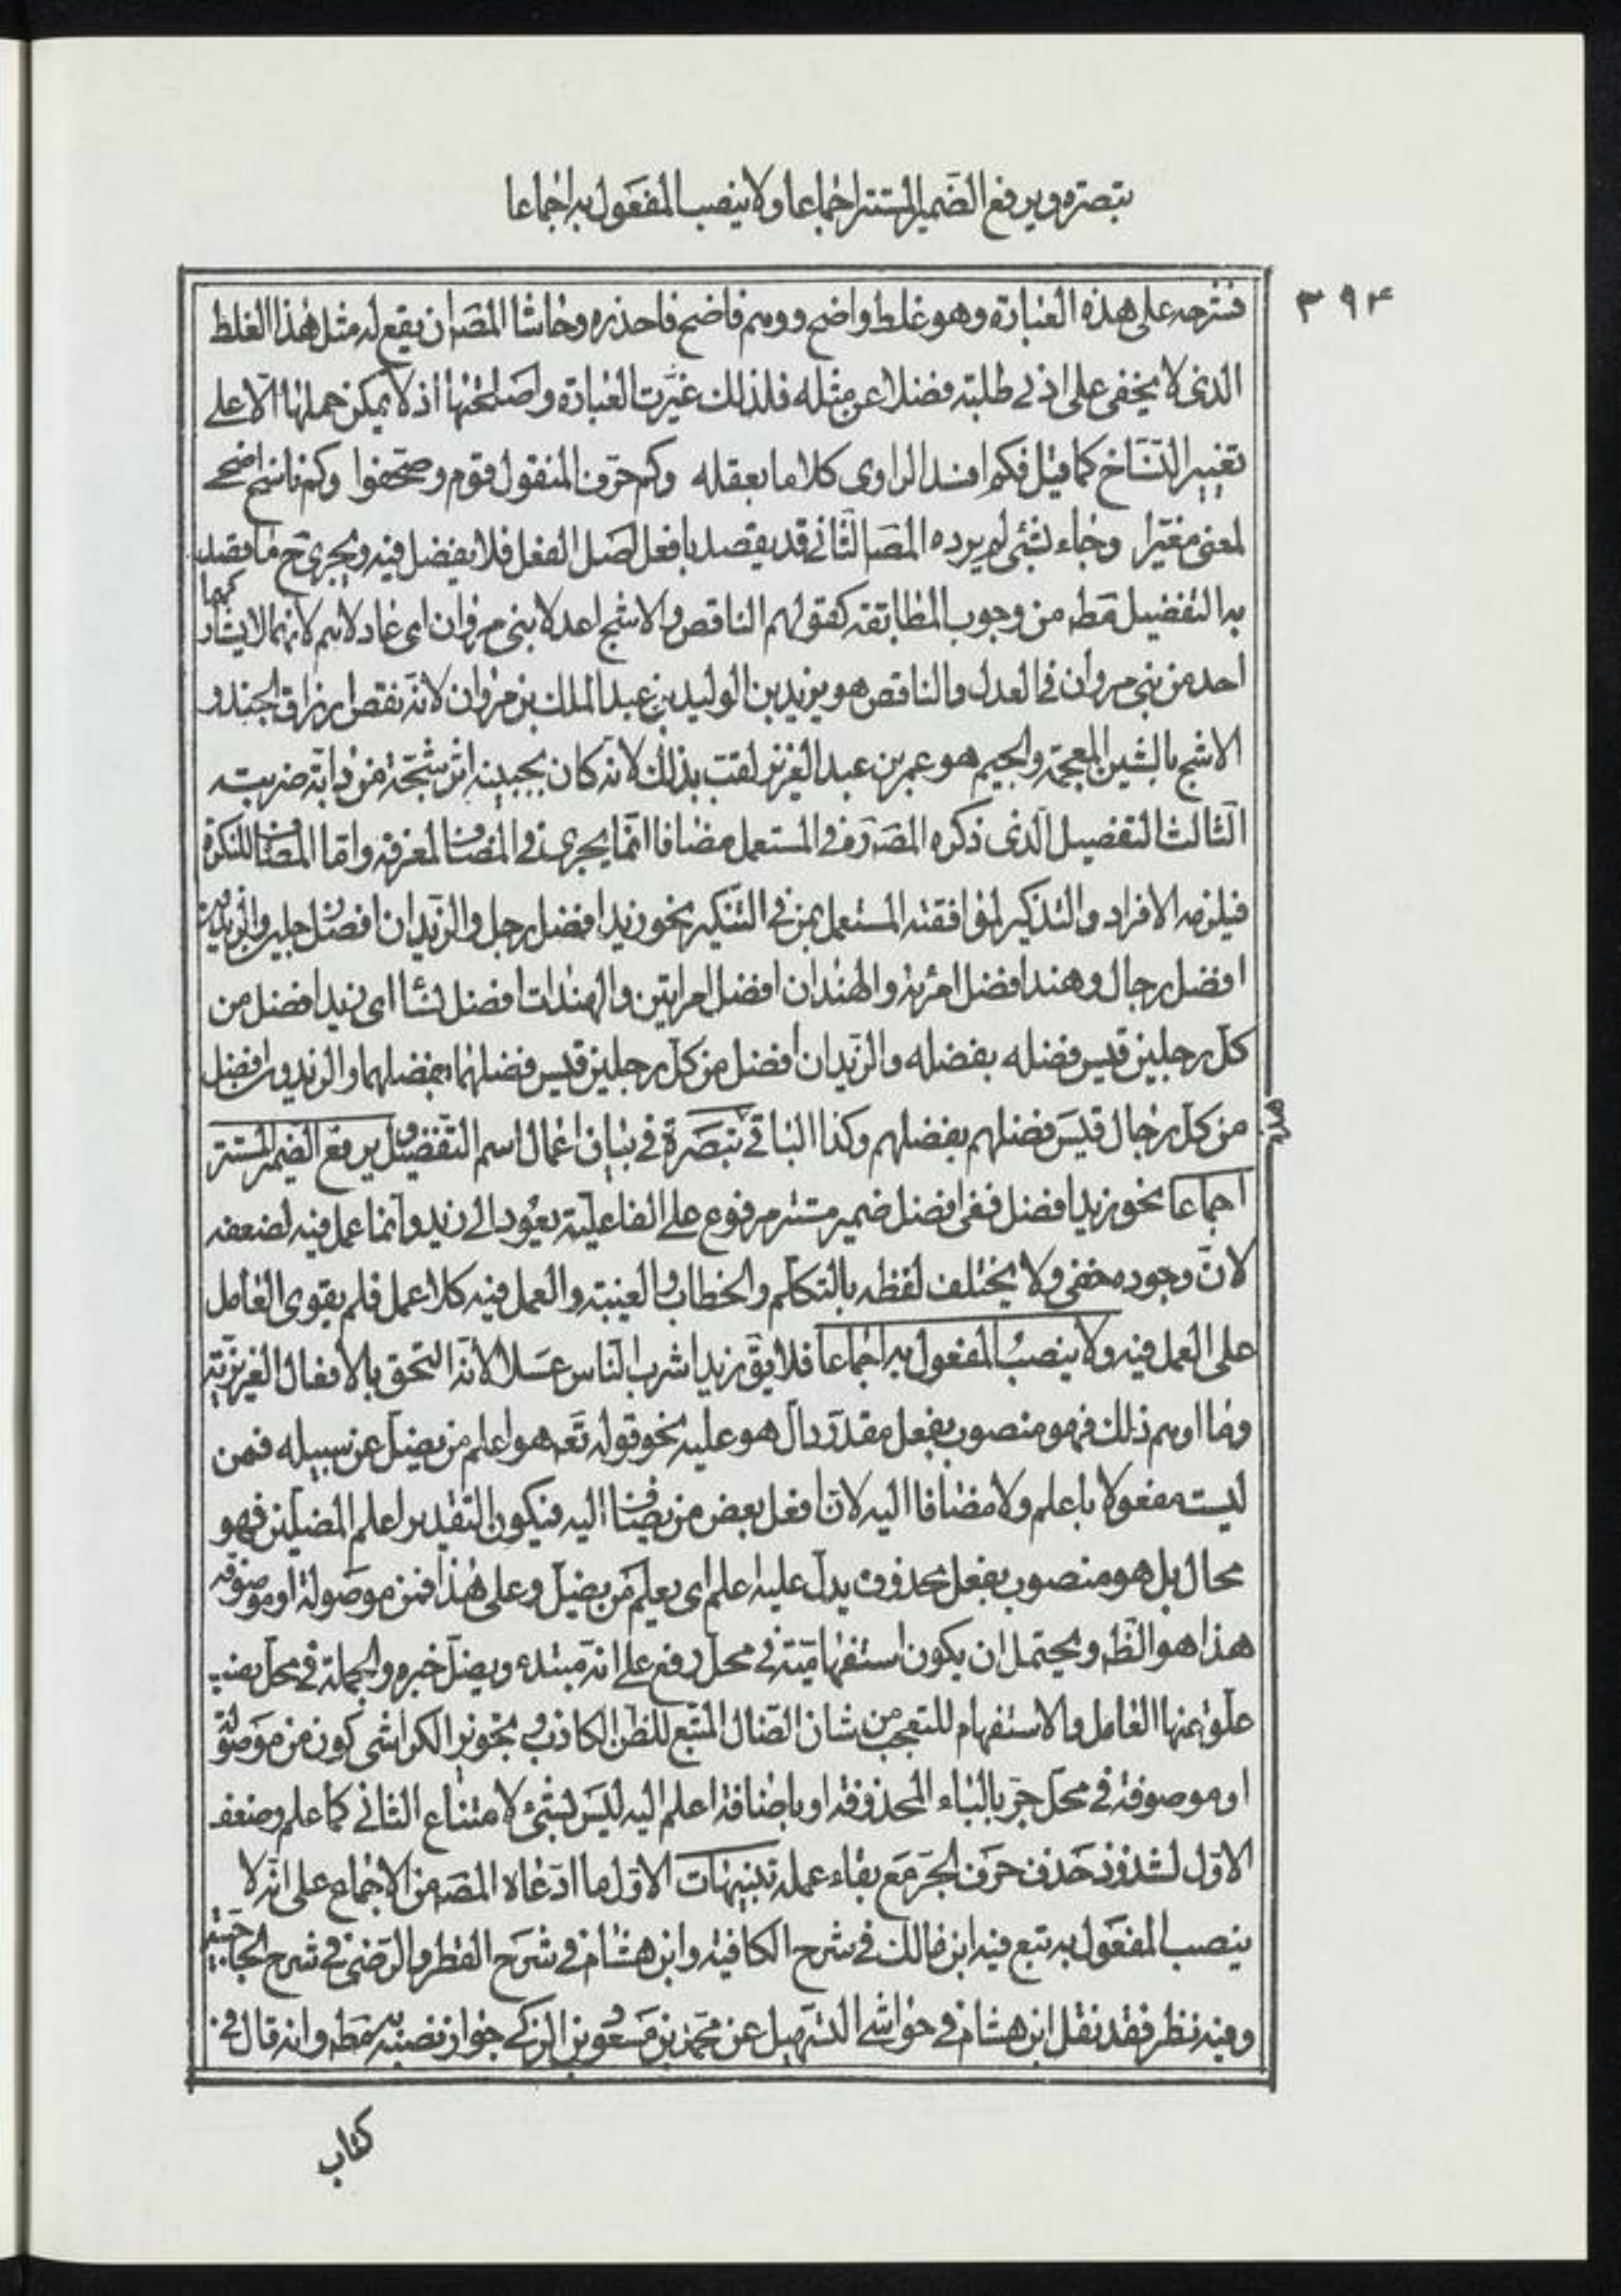 تبصرة ويرفع الضمير المستتر اجماعا ولا ينصب المفعول به اجماعا
٣٩۴
فشرحه على هذه العبارة وهو غلط واضح ووهم فاضح فاحذره وحاشا المصـ ان يقع له مثل هذا الغلط
الذى لا يخفى على ادنى طلبته فضلا عن مثله فلذلك غيّرت العبارة واصلحتها اذ لا يمكن حملها الّا على
تغيير النسّاخ كما قيل فكم افسد الراوى كلاما بعقله وكم حرّف المنقول قوم وصحّفوا وكم ناسخ اضحى
لمعنى مغيّرا وجاء بشئ لم يرده المصـ الثّانى قد يقصد بافعل اصل الفعل فلا يفضل فيه ويجرى ح ما يقصد
به التفضيل مط من وجوب المطابقة كقولهم الناقص والاشج اعدلا بنى مروان اى عادلاهم لانهما لا يشاركهما
احد من بنى مروان فى العدل والناقص هو يزيد بن الوليد بن عبد الملك بن مروان لانه نقص ارزاق الجند و
الاشج بالشين المعجمة والجيم هو عمر بن عبد العزيز لقب بذلك لانه كان بجبينه اثر شجّة من دابّة ضربته
الثّالث التفصيل الّذى ذكره المصـ ره فى المستعمل مضافا انّما يجرى فى المضاف لمعرفة وامّا المضاف للنكرة
فيلزمه الافراد والتذكير لموافقته المستعمل بمن فى التنكير نحو زيد افضل رجل والزيدان افضل رجلين والزيدون
افضل رجال وهند افضل امرئة والهندان افضل امراتين والهندات افضل نسا اى زيد افضل من
كلّ رجلين قيس فضله بفضله والزيدان افضل من كلّ رجلين قيس فضلهما بفضلهما والزيدون افضل
من كلّ رجال قيس فضلهم بفضلهم وكذا الباقى تبصرة فى بيان اعمال اسم التفضيل ويرفع الضمير المستتر
اجماعا نحو زيد افضل ففى افضل ضمير مستتر مرفوع على الفاعلية يعود الى زيد وانما عمل فيه لضعفه
لانّ وجوده مخفى ولا يختلف لفظه بالتكلّم والخطاب والغيبة والعمل فيه كلا عمل فلم يقوى العامل
على العمل فيه ولا ينصب المفعول به اجماعا فلا يق زيد اشرب الناس عسلا لانه التحق بالافعال الغريزيّة
وما اوهم ذلك فهو منصوب بفعل مقدّر دالّ هو عليه نحو قوله تعـ هو اعلم من يضلّ عن سبيله فمن
ليست مفعولا باعلم ولا مضافا اليه لانّ افعل بعض من يضاف اليه فيكون التقدير اعلم المضلّين فهو
محال بل هو منصوب بفعل محذوف يدلّ عليه اعلم اى يعلم من يضلّ وعلى هذا فمن موصولة او موصوفة
هذا هو الظّ ويحتمل ان يكون استفهاميّة فى محل رفع على انّه مبتدء ويضلّ خبره والجملة فى محلّ نصب
علّق عنها العامل والاستفهام للتعجب من شان الضالّ المتبع للظنّ الكاذب وتجويز الكواشى كون من موصولة
او موصوفة فى محلّ جرّ بالباء المحذوفة او باضافة اعلم اليه ليس بشئ لامتناع الثانى كما علم وضعف
الاوّل لشذوذ حذف حرف الجرّ مع بقاء عمله تنبيهات الاوّل ما ادّعاه المصـ من الاجماع على انّه لا
ينصب المفعول به تبع فيه ابن مالك فى شرح الكافية وابن هشام فى شرح القطر والرضى فى شرح الحاجبيّة
وفيه نظر فقد نقل ابن هشام فى حواشى التسهيل عن محمّد بن مسعود بن الزكى جواز نصبه به مط وانه قال فى
كتاب